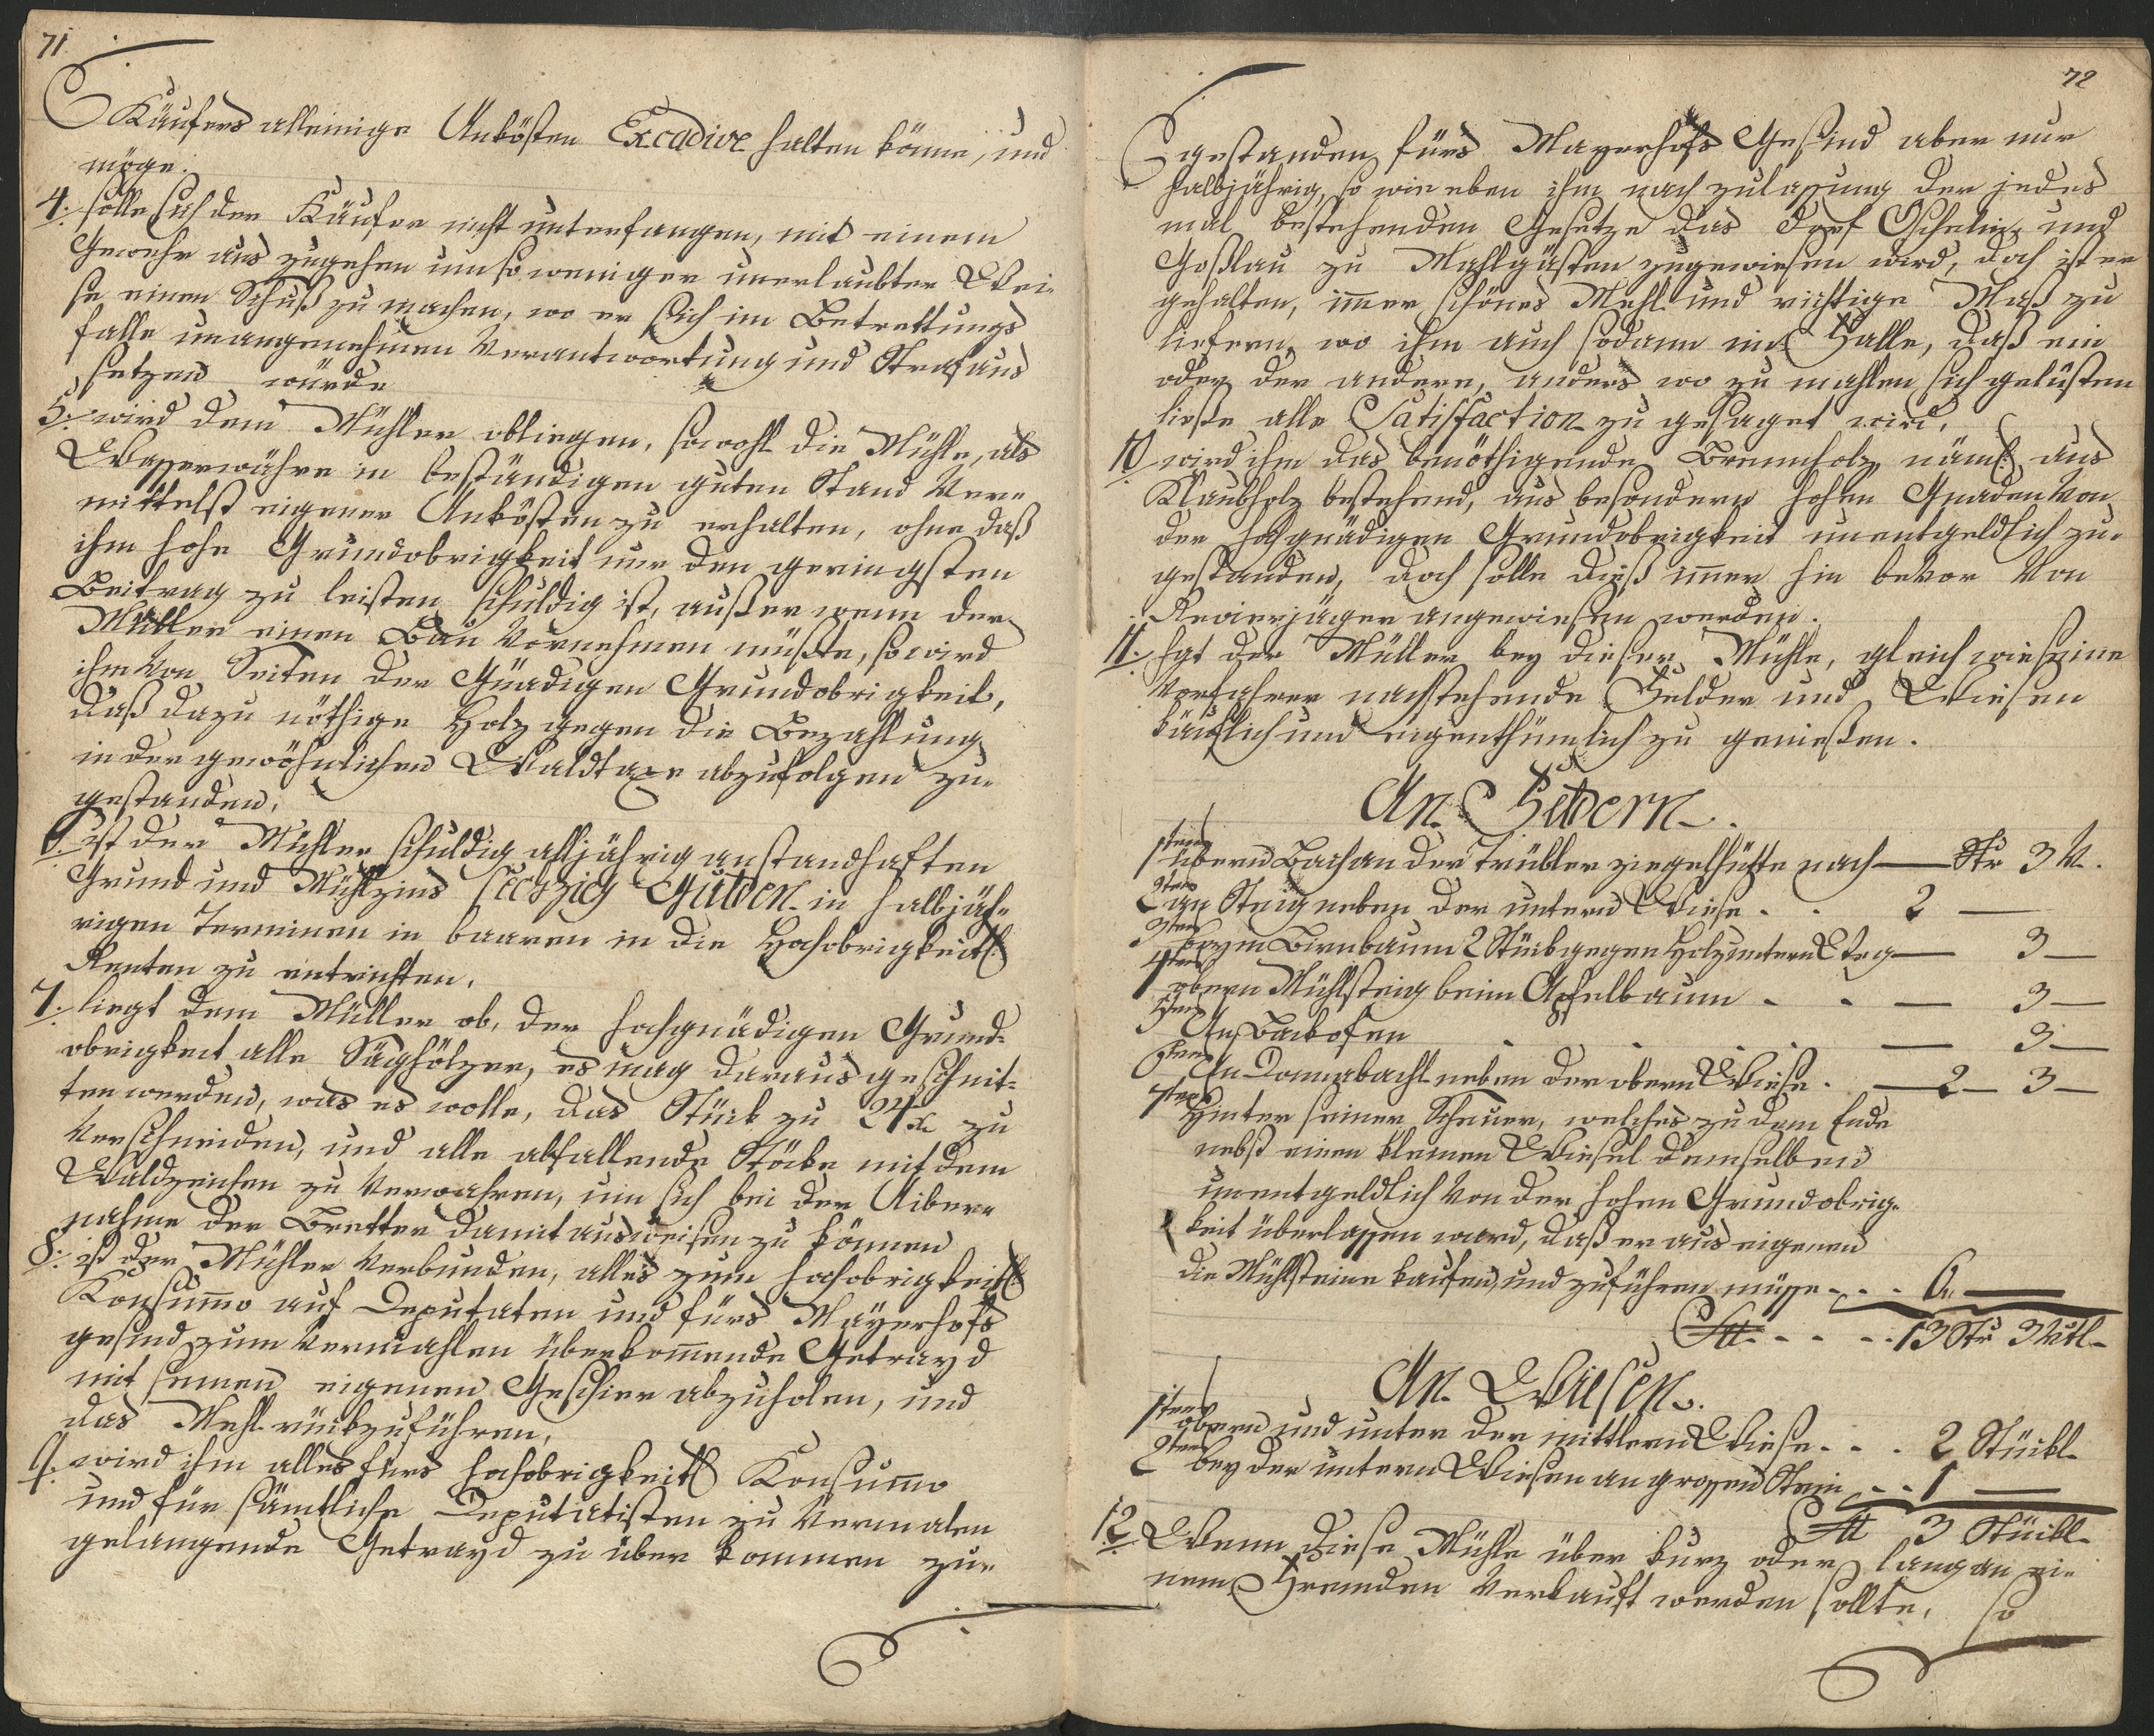 71.
Käufers alleinige Unkösten Excadive halten könne, und
möge.
4. solle sich der Käufer nicht unterfangen, mit einem
Gewehr aus zugehen um so weniger unerlaubter Wei-
se einen Schuß zu machen, wo er sich im Betrettungs
falle unangenehmen Verantwortung und Straf aus
setzen würde
5. wird dem Mühler obliegen, sowohl die Mühle, als
Wasserwöhre in beständigen guten Stand Ver-
mittelst eigener Unkösten zu erhalten, ohne daß
ihm hohe Grundobrigkeit nur den geringsten
Beitrag zu leisten schuldig ist, außer wenn der
Müller einen Bau Vornehmen müßte, so wird
ihm Von Seiten der Gnädigen Grundobrigkeit,
daß dazu nöthige Holz gegen die Bezahlung
in der gewöhnlichen Waldtaxe abzufolgen zu-
gestanden.
6. ist der Mühler schuldig alljährig anstandhaften
Grund und Mühlzins sechzig Gulden in halbjäh-
rigen Terminen in baaren in die Hochobrigkeitl.
Renten zu entrichten.
7. liegt dem Müller ob, der hochgnädigen Grund-
obrigkeit alle Säghölzer, es mag daraus geschnit-
ten werden, was es wolle, das Stück zu 24 x zu
Verschneiden, und alle abfallende Stöcke mit dem
Waldzeichen zu Verwahren, um sich bei der Uiber-
nahme der Bretter damit ausweisen zu können
8. ist der Mühler Verbunden, alles zum hochobrigkeitl.
Konsummo auf Deputaten und fürs Mayerhofs
gesind zum Vermahlen überkommende Getrayd
mit seinen eigenen Geschirr abzuholen, und
das Mehl rückzuführen,
9. wird ihm alles fürs hochobrigkeitl. Konsummo
und für sämtliche Deputatisten zu Vermalen
gelangende Getrayd zu über kommen zu-
72
gestanden, fürs Mayerhofs Gesind aber nur
halbjährig, so wie eben ihm nach zulassung der jedes
mal bestehenden Gesetze das Dorf Oschelin und
Goßlau zu Mahlgästen zugewiesen wird, doch ist er
gehalten, immer schönes Mehl und richtige Maß zu
liefern, wo ihm auch sodann im Falle, daß ein
oder der andere, anders wo zu mahlen sich gelüsten
ließe alle Satisfaction zu gesaget wird.
10 wird ihm das benöthigende Brennholz näml. aus
Klaubholz bestehend, aus besondern hohen Gnaden Von
der hochgnädigen Grundobrigkeit unentgeldlich zu-
gestanden, doch solle dieß immer hin bevor Von
Revierjäger angewiesen werden.
11. hat der Müller bey dieser Mühle, gleich wie seine
Vorfahrer nachstehende Felder und Wiesen
käuflich und eigenthümlich zu genießen.
An Feldern.
1tens übern Bach an der Trübler ziegelhütte nach — Str 3 V.
2tens an Steig neben der untern Wiese . . 2 —
3tens beym Birnbaum 2 Stück gegen Holz untern Steg — 3 —
4tens obern Mühlsteig beim Apfelbaum - - — 3 —
5tens An Backofen . . . . — 3 —
6tens An Donnabachl neben der obern Wiese . — 2 — 3 —
7tens Hinter seiner Scheuer, welches zu dem Ende
nebst einen kleinen Wiesel demselben
unentgeldlich Von der hohen Grundobrig-
keit überlassen ward, daß er aus eigenen
die Mühlsteine kaufen, und zuführen müsse - - . 6 —
- - - - . 13 Str 3 Vtl.
An Wiesen.
1tens obern und unter der mittlern Wiese . - . 2 Stückl.
2tens bey der untern Wiesen an grossen Stein - - 1 —
3 Stückl.
12. Wenn diese Mühle über kurz oder lang an ei-
nem Fremden Verkauft werden sollte, so